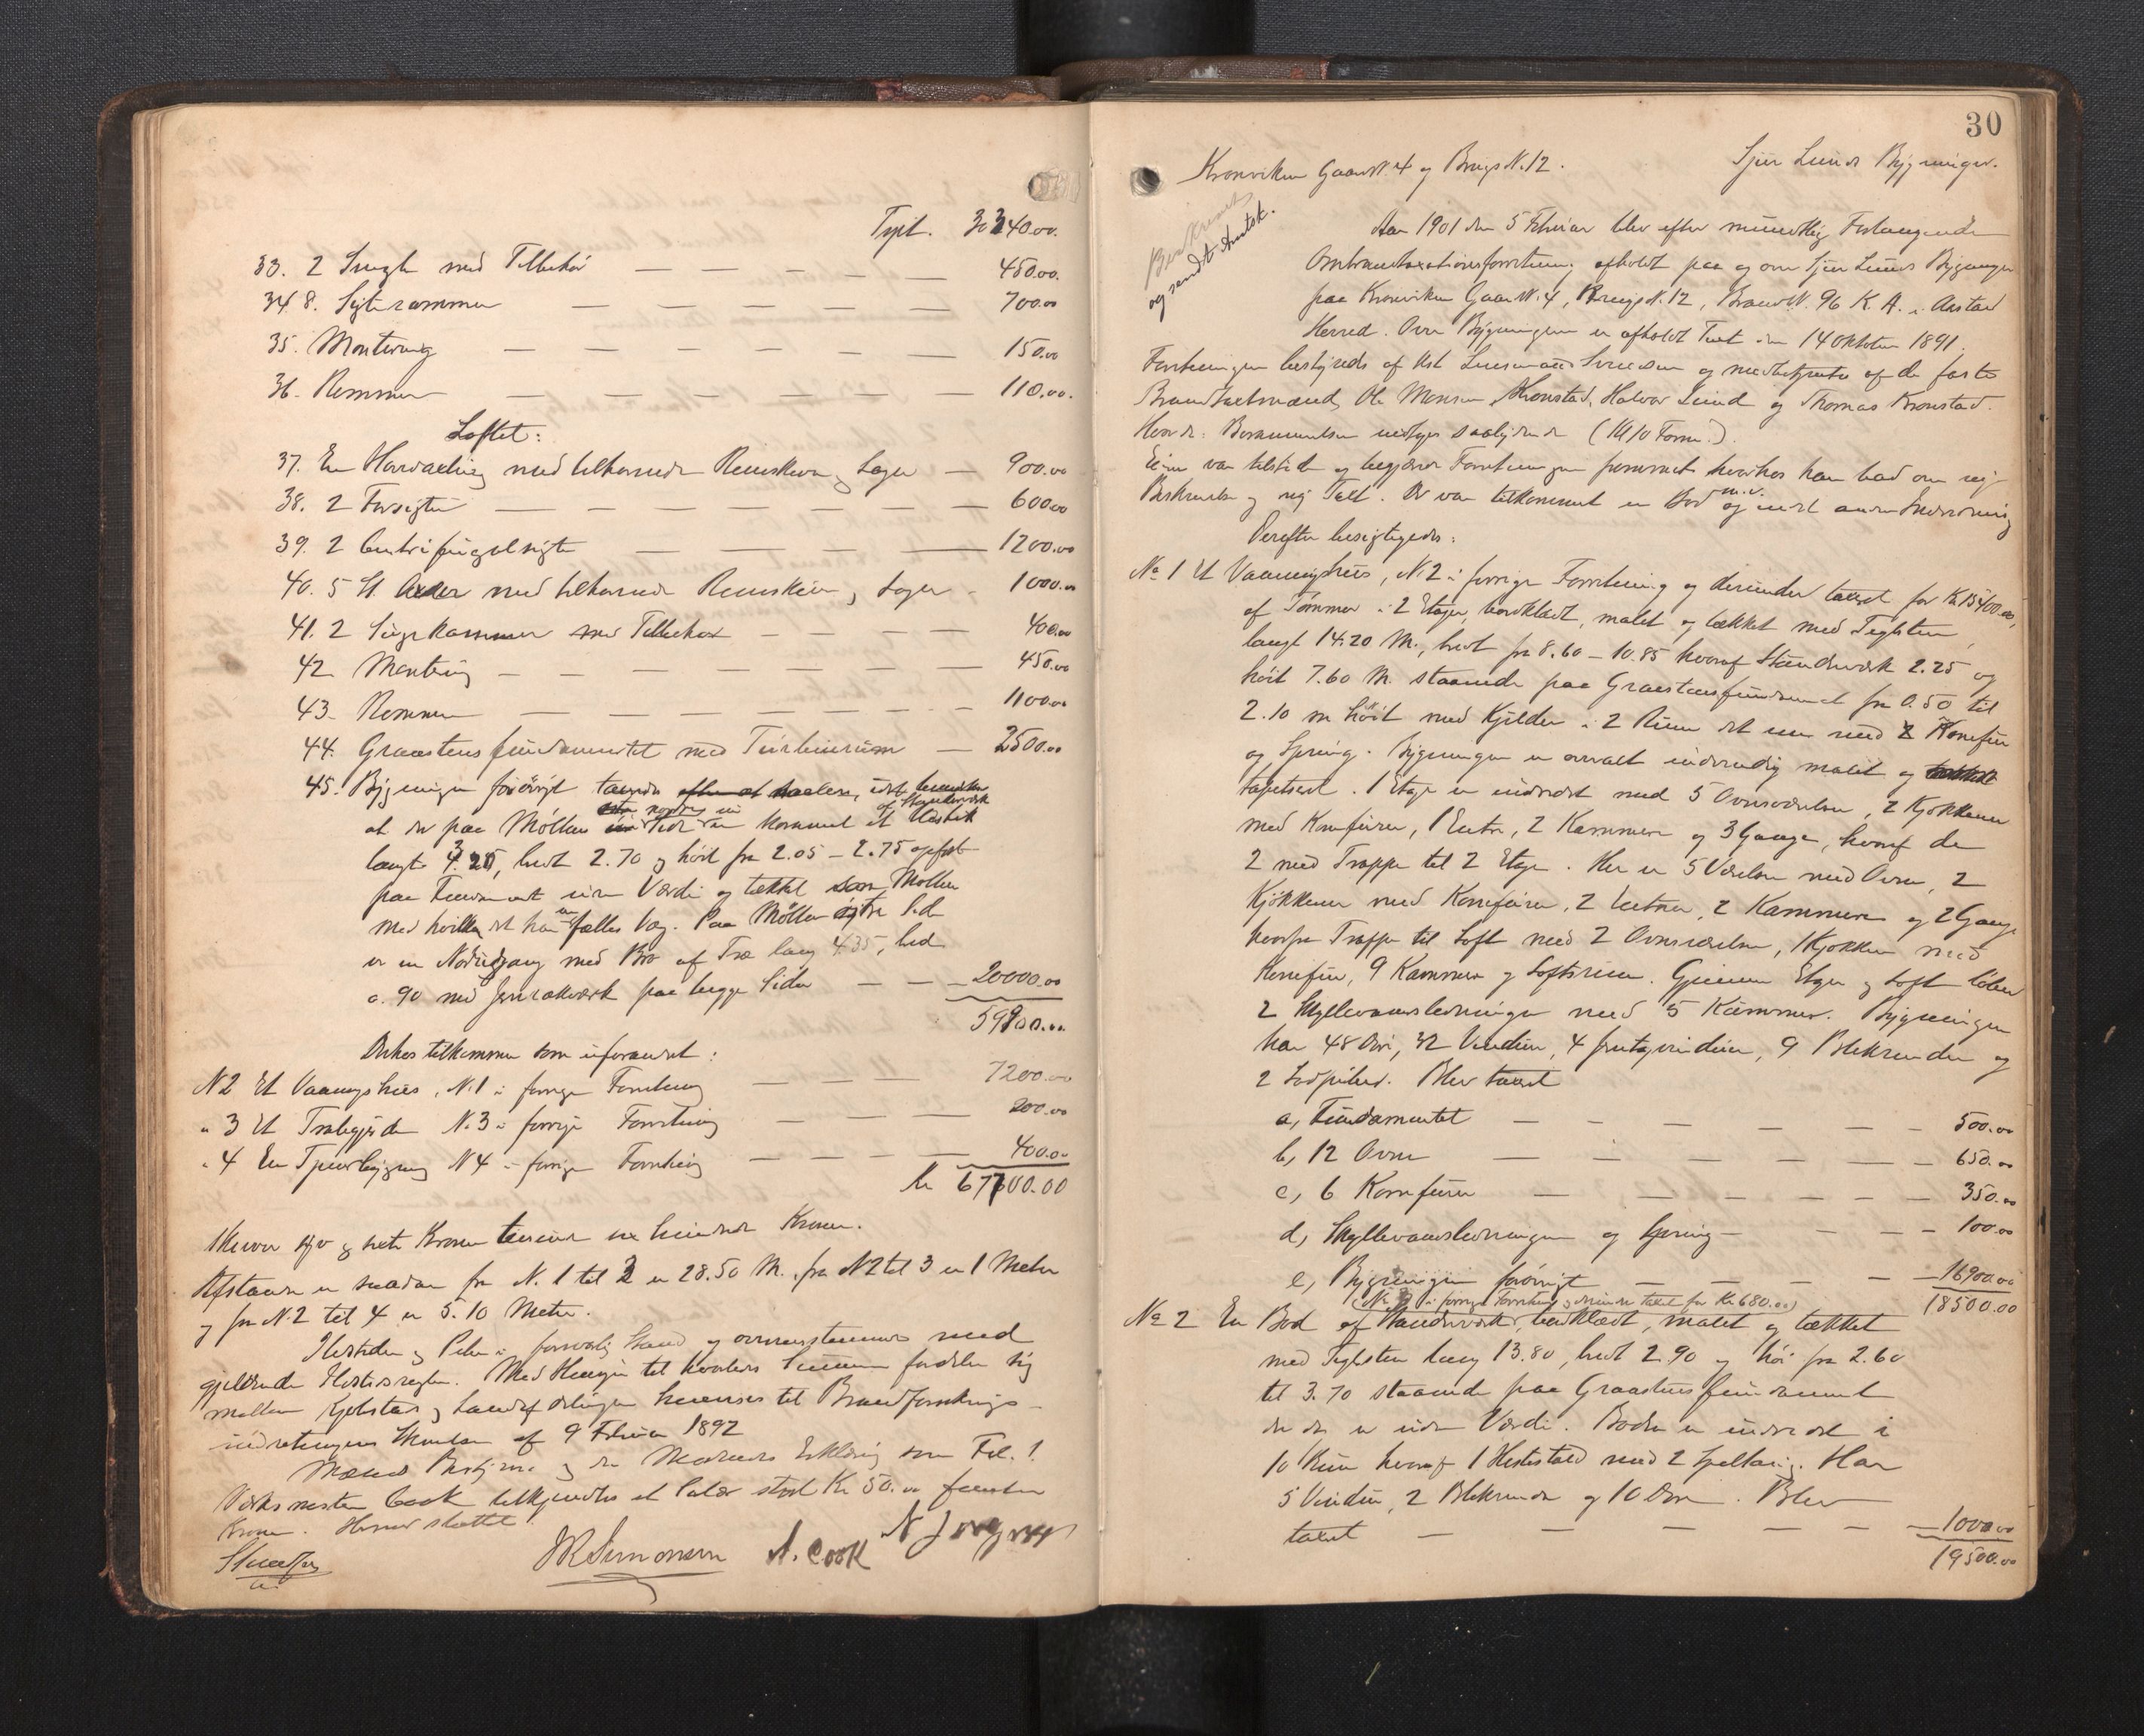 Tpt. 30340.00.
33. 2 Snegle med Tilbehør — 450.00.
34. 8. Sigterammer — 700.00
35. Montering — 150.00
36. Remmer — 110.00.
Loftet:
37. En med tilhørende Remskiver og Lager — 900.00
38. 2 Forsigter — 600.00
39. 2 Centrifugalsigte — 1200.00
40. 5 St. Axler med tilhørende Remskiver og Lager - 1000.00
41. 2 Sugekammer med Tilbehør — 400.00
42 Montering — 450.00
43. Remmer — 1100.00
44. Graastensfundamentet med Turbinrum — 2500.00
45. Bygningen forøvrigt taxeredes
at der paa Møllens nordre Side er kommet et af Standerværk
langt 3.25, bredt 2.70 og høit fra 2.05 – 2.75 opført
paa Fundament uden Værdi og tækket som Møllen
med hvilken det har fælles Væg. Paa Møllens østre Side
er en Nødudgang med Bro af Træ lang 4.35, bred
0.90 med Jernrækværk paa begge Sider — 20000.00
59900.00
Derhos tilkommer som uforandret:
N 2 Et Vaaningshus, N. 1 i forrige Forretning — 7200.00
" 3 Et N. 3 i forrige Forretning — 200.00
" 4 En bygning N 4 i forrige Forretning — 400.00
Kr 67700.00
Skriver syv og seksti Kroner tusinde hundrede Kroner.
Afstanden er saadan fra N. 1 til 2 er 28.50 M. fra N 2 til 3 er 1 Meter
og fra N. 2 til 4 er 5.10 Meter.
Ildsteder og Piber i forsvarlig Stand og overensstemmende med
gjeldende Ildstedsregler. Med Hensyn til hvorledes Summen fordeler sig
mellem Kjøbstad og Landafdelingen henvises til Brandforsikrings-
indretningens Skrivelse af 9 Februar 1892
Mænds Bestyrer og de Erklæring som Fol. 1.
Cook tilkjendtes et Salær stort Kr 50.00 femti
Kroner. Hermed sluttet.
JR Simonsen A. Cook N Jorgensen
30
Kronviken Gaards N. 4 og Brugs N. 12. Sjur Lunds Bygninger.
Beskrevet
og sendt Amtsk.
Aar 1901 den 5 Februar blev efter mundtlig Forlangende
Ombrandtaxationsforretning afholdt paa og over Sjur Lunds Bygninger
paa Kronviken Gaards N. 4, Brugs N. 12, Brands N. 96 K. A. i Aarstad
Herred. Over Bygningen er afholdt Taxt den 14 Oktober 1891.
Forretningen bestyredes af Kst Lensmand og medbetjentes af de faste
Brandtaxtmænd, Ole Monsen Kronstad, Halvor Lund og Thomas Kronstad.
Hvorda: Berammelsen indtages saalydende (1910 Form.).
Eieren var tilstede og begjærer Forretningen fremmet hvorhos han bad om ny
Beskrivelse og ny Taxt. Der var tilkommet en Bod m.v. og nyt anden Indredning
Derefter besigtigedes:
No 1 Et Vaaningshus, N. 2 i forrige Forretning og derunder taxeret for Kr 15400.00,
af Tømmer i 2 Etager, bordklædt, malet og tækket med Teglsten,
langt 14.20 M., bredt fra 8.60 – 10.85 hvoraf Standerværk 2.25 og
høit 7.60 M. staaende paa Graastensfundament fra 0.50 til
2.10 m høit med Kjelder i 2 Rum det ene med Komfur
og Spring. Bygningen er overalt indvendig malet og
tapetseret. 1 Etage er indredet med 5 Ovnsværelser, 2 Kjøkkener
med Komfurer, 1 Entre, 2 Kammere og 3 Gange, hvoraf de
2 med Trappe til 2 Etage. Her er 5 Værelser med Ovne, 2
Kjøkkener med Komfurer, 2 Entreer, 2 Kammere og 2 Gange
hvorfra Trappe til Loft med 2 Ovnsværelser, 1 Kjøkken med
Komfur, 9 Kammer og Loftsrum. Gjennem Etager og Loft løber
2 Skyllevandsledninger med 5 Kummer. Bygningen
har 48 Døre, 32 Vinduer, 4 vinduer, 9 Blikrender og
2 Lodpiber. Blev taxeret
a, Fundamentet — 500.00
b, 12 Ovne — 650.00
c, 6 Komfurer — 350.00
d, Skyllevandsledningen og Spring — 100.00
e, Bygningen forøvrigt — 16900.00
18500.00
(No 3 i forrige Forretning og derunder taxeret for Kr 680.00)
No 2 En Bod af Standerværk, bordklædt, malet og tækket
med Teglsten lang 13.80, bredt 2.90 og høi fra 2.60
til 3.70 staaende paa Graastensfundament
der er uden Værdi. Boden er indredet i
10 Rum hvoraf 1 Hestestald med 2 Spiltoug. Har
5 Vinduer, 2 Blikrender og 10 Døre. Blev
taxeret — 1000.00
19500.00